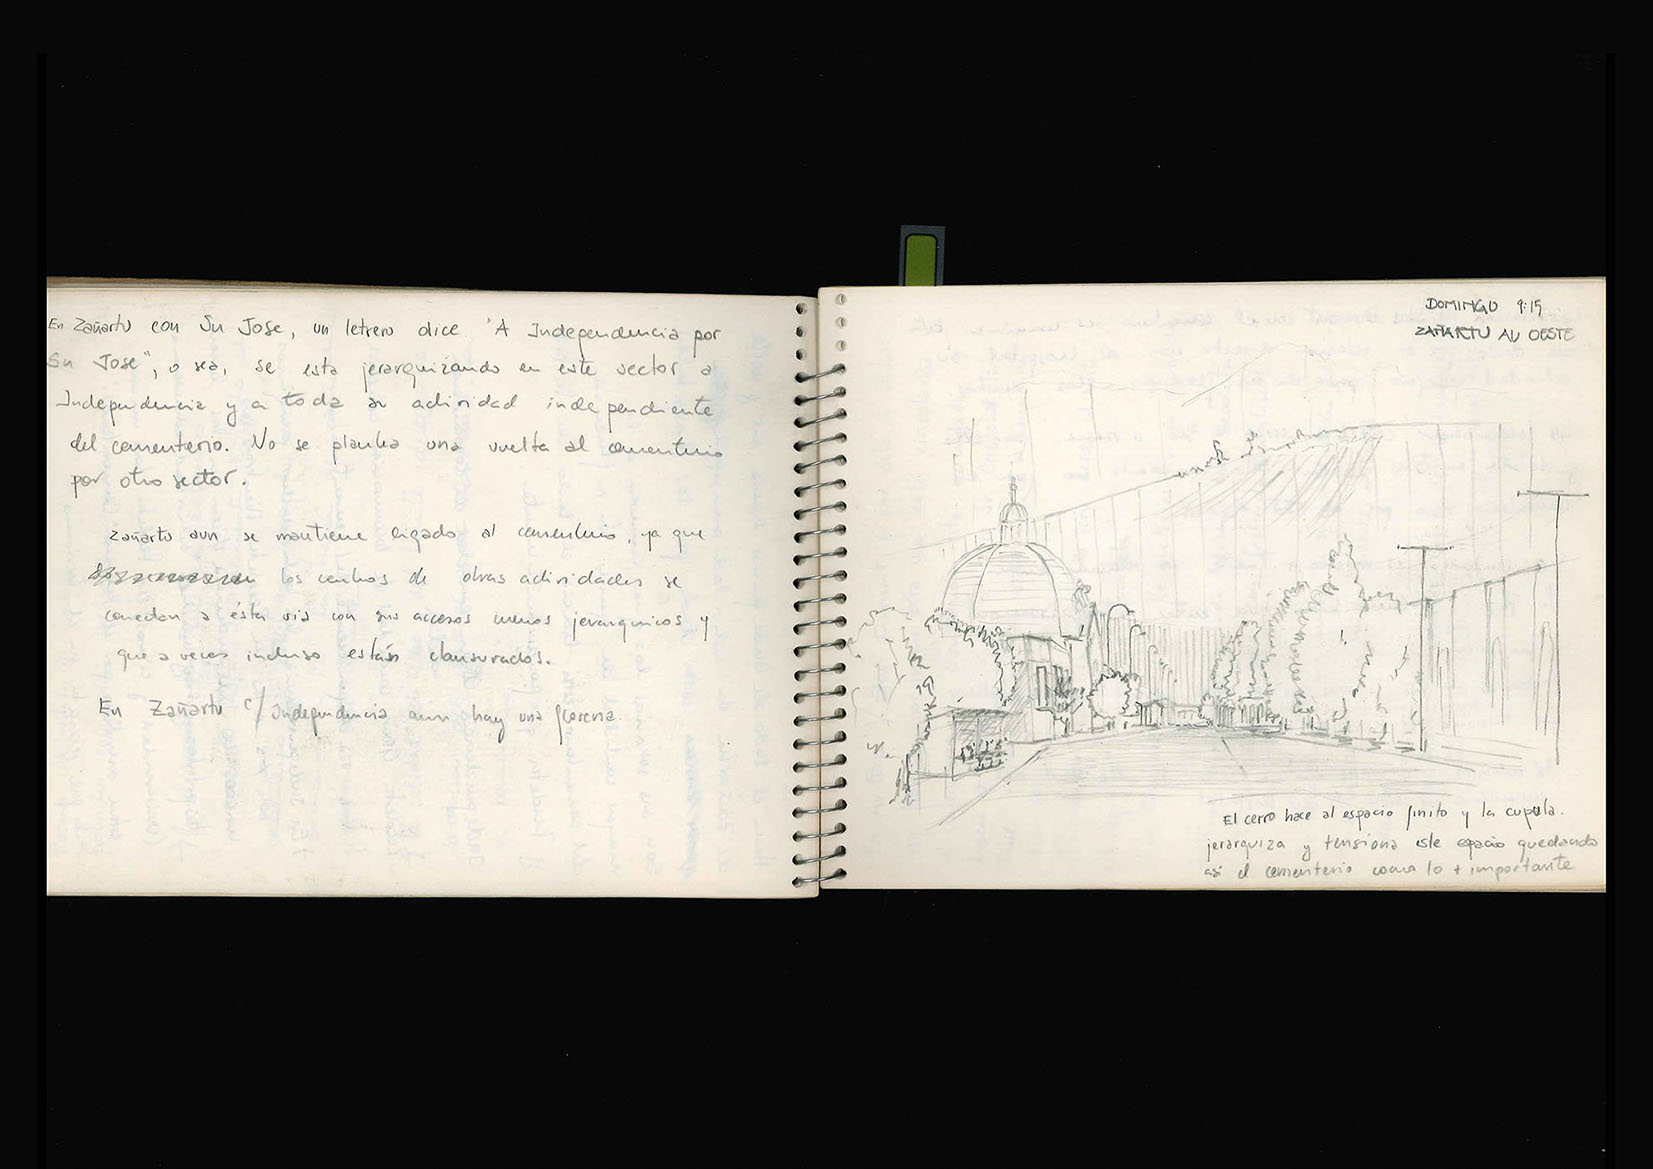 En Zañartu con Sn Jose, un letrero dice "A Independencia por
Sn Jose", o sea, se esta jerarquizando en este sector a
Independencia y a toda su actividad independiente
del cementerio. No se plantea una vuelta al cementerio
por otro sector.
Zañartu aun se mantiene ligado al cementerio, ya que
los centros de otras actividades se
conectan a ésta vis con sus accesos menos jerarquicos y
que a veces incluso están clausurados.
En Zañartu c/ Independencia aun hay una florería.
DOMINGO 9:15
ZAÑARTU AL OESTE
El cerro hace al espacio finito y la cupula.
jerarquiza y tensiona este espacio quedando
asi el cementerio como lo + importante